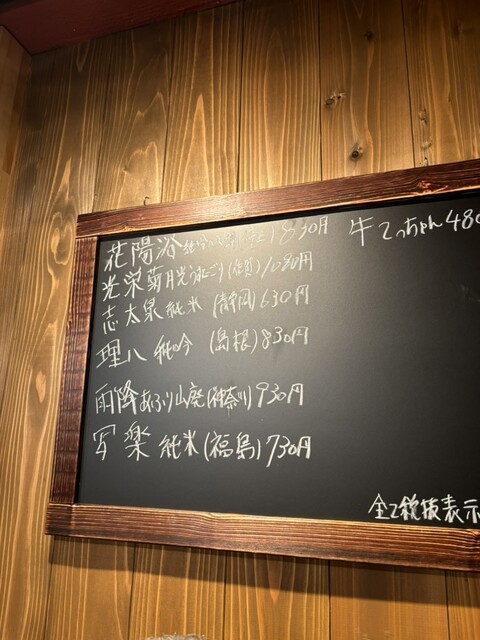 花陽浴 純吟 (埼玉) 830円
光栄菊 月光うすにごり (佐賀) 1080円
志太泉 純米 (静岡) 630円
理八 純吟 (島根) 830円
雨降 あふり 山廃 (神奈川) 930円
写楽 純米 (福島) 730円
牛てっちゃん 480
全て税抜表示